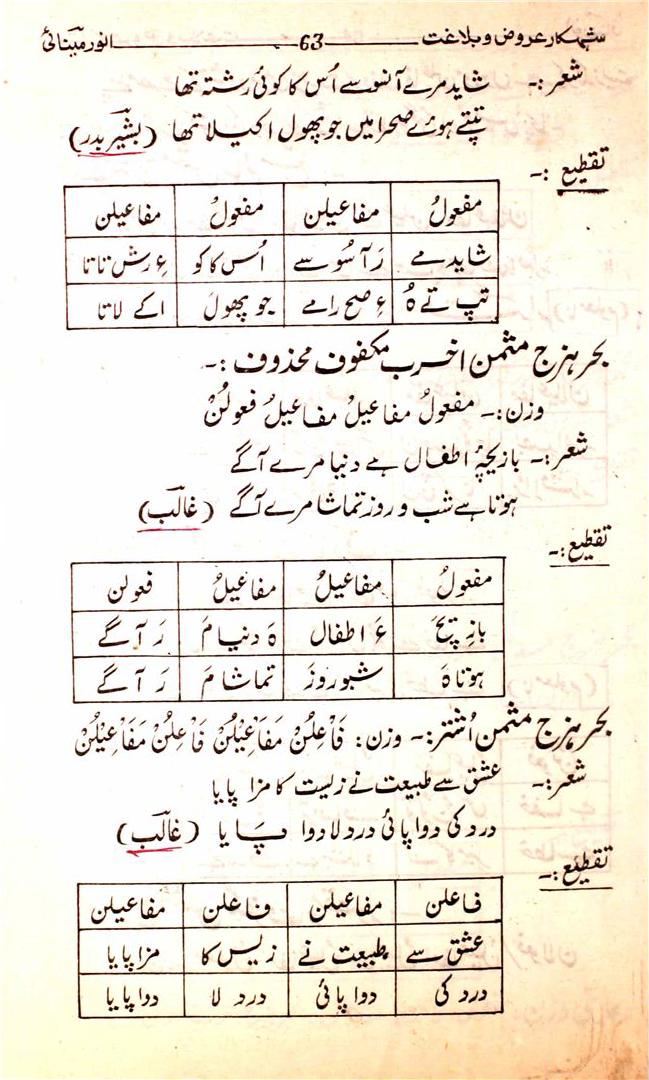 شہکار عروض و بلاغت ــــــ 63 ــــــ انور مینائی
شعر:۔ شاید مرے آنسو سے اُس کا کوئی رشتہ تھا
تپتے ہوئے صحرا میں جو پھول اکیلا تھا (بشیر بدر)
تقطیع :۔
مفعولُ مفاعیلن مفعولُ مفاعیلن
شاید مے رَ آ سُو سے اُس کا کو ءِ رش تا تا
تپ تے ہُ ءِ صح را مے جو پھول اکے لا تا
بحر ہزج مثمن اخرب مکفوف محذوف :۔
وزن:۔ مفعولُ مفاعیلُ مفاعیلُ فعولُنْ
شعر:۔ بازیچۂ اطفال ہے دنیا مرے آگے
ہوتا ہے شب و روز تماشا مرے آگے (غالب)
تقطیع:۔
مفعولُ مفاعیلُ مفاعیلُ فعولن
بازیچَ ءَ اطفال ہَ دنیا مَ رَ آ گے
ہوتا ہَ شبو روزَ تماشا مَ رَ آ گے
بحر ہزج مثمن اُشتر:۔ وزن: فَاْعِلُنْ مَفَاْعِیْلُنْ فَاْعِلُنْ مَفَاْعِیْلُنْ
شعر:۔ عشق سے طبیعت نے زیست کا مزا پایا
درد کی دوا پائی درد لا دوا پایا (غالب)
تقطیع:۔
فاعلن مفاعیلن فاعلن مفاعیلن
عشق سے طبیعت نے زیس کا مزا پایا
درد کی دوا پائی درد لا دوا پایا